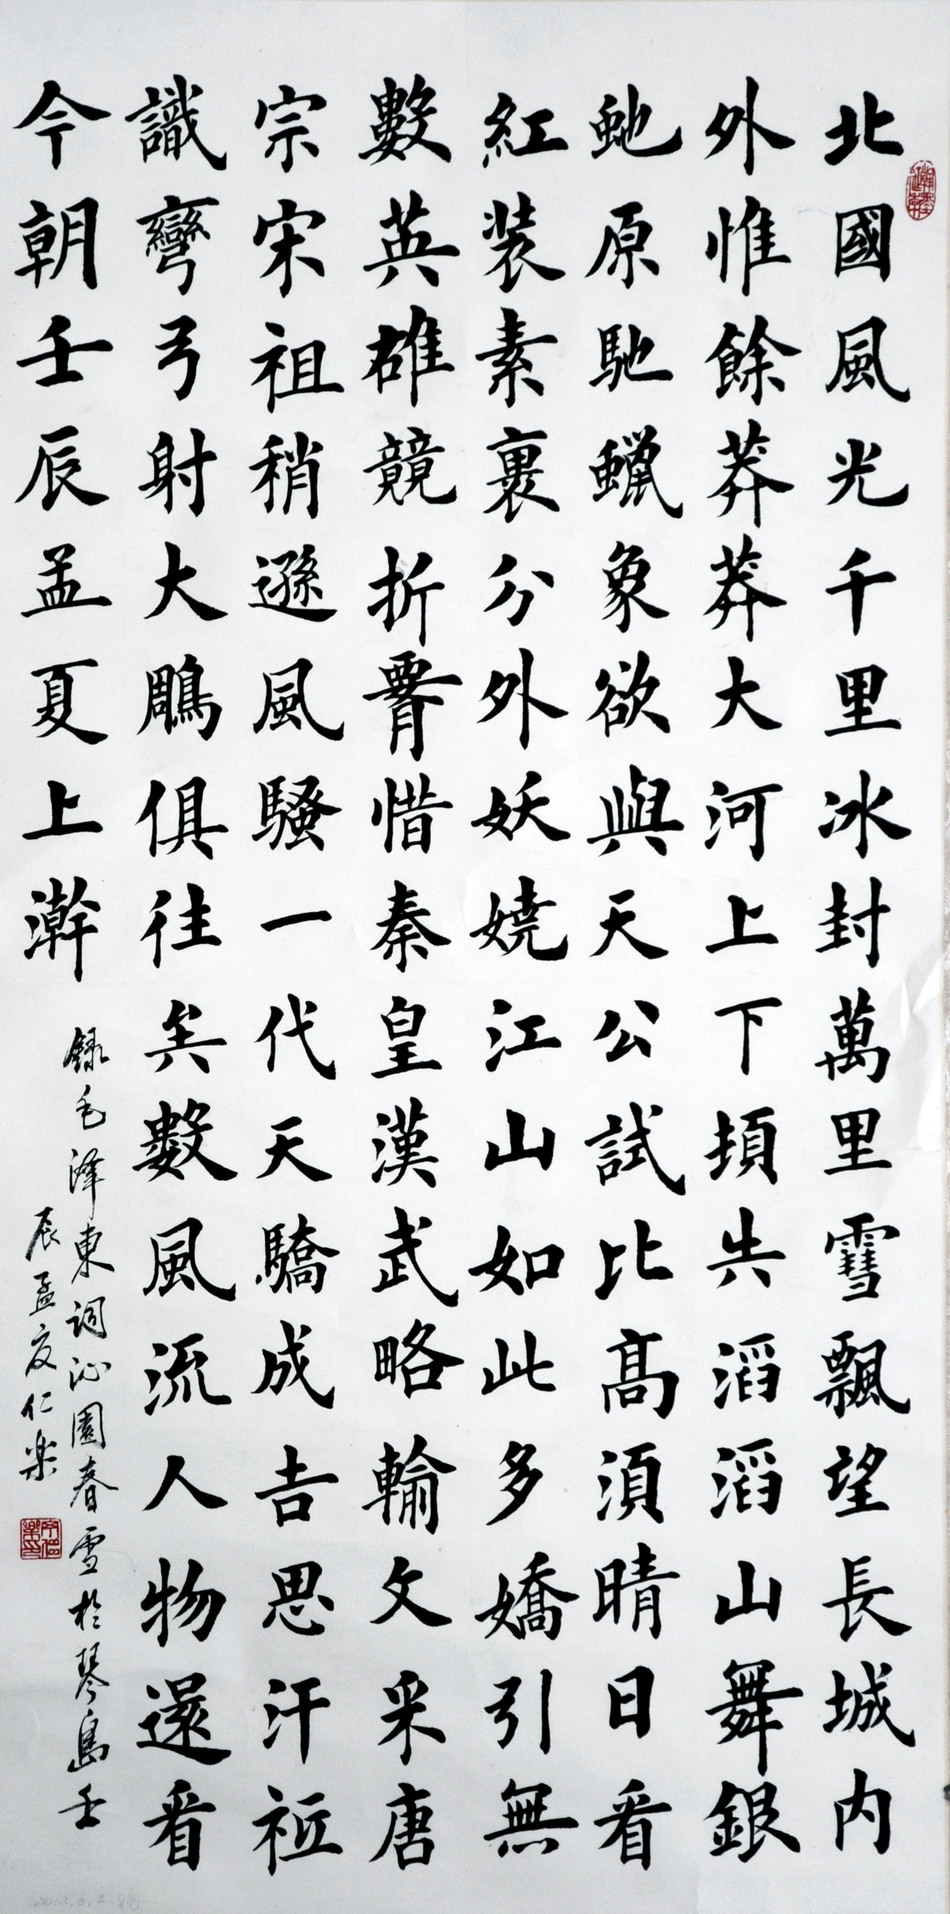 北國風光千里冰封萬里雪飄望長城内
外惟餘莽莽大河上下頓失滔滔山舞銀
虵原馳蠟象欲與天公試比高須晴日看
紅装素裹分外妖嬈江山如此多嬌引無
數英雄競折腰惜秦皇漢武略輸文采唐
宗宋祖稍遜風騷一代天驕成吉思汗祗
識彎弓射大鵰俱往矣數風流人物還看
今朝壬辰孟夏上澣
録毛澤東詞沁園春雪於琴島壬
辰孟夏仁楽